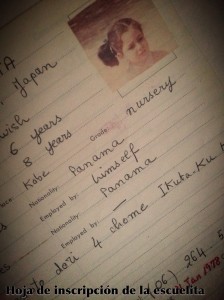 Japan
wish
6 years
8 years Grade: nursery
Kobe Panama
Nationality:
Employed by: himself
Nationality: Panama
Employed by: —
dori 4 chome Ikuta-Ku
06) 264
Jan 1978
Hoja de inscripción de la escuelita